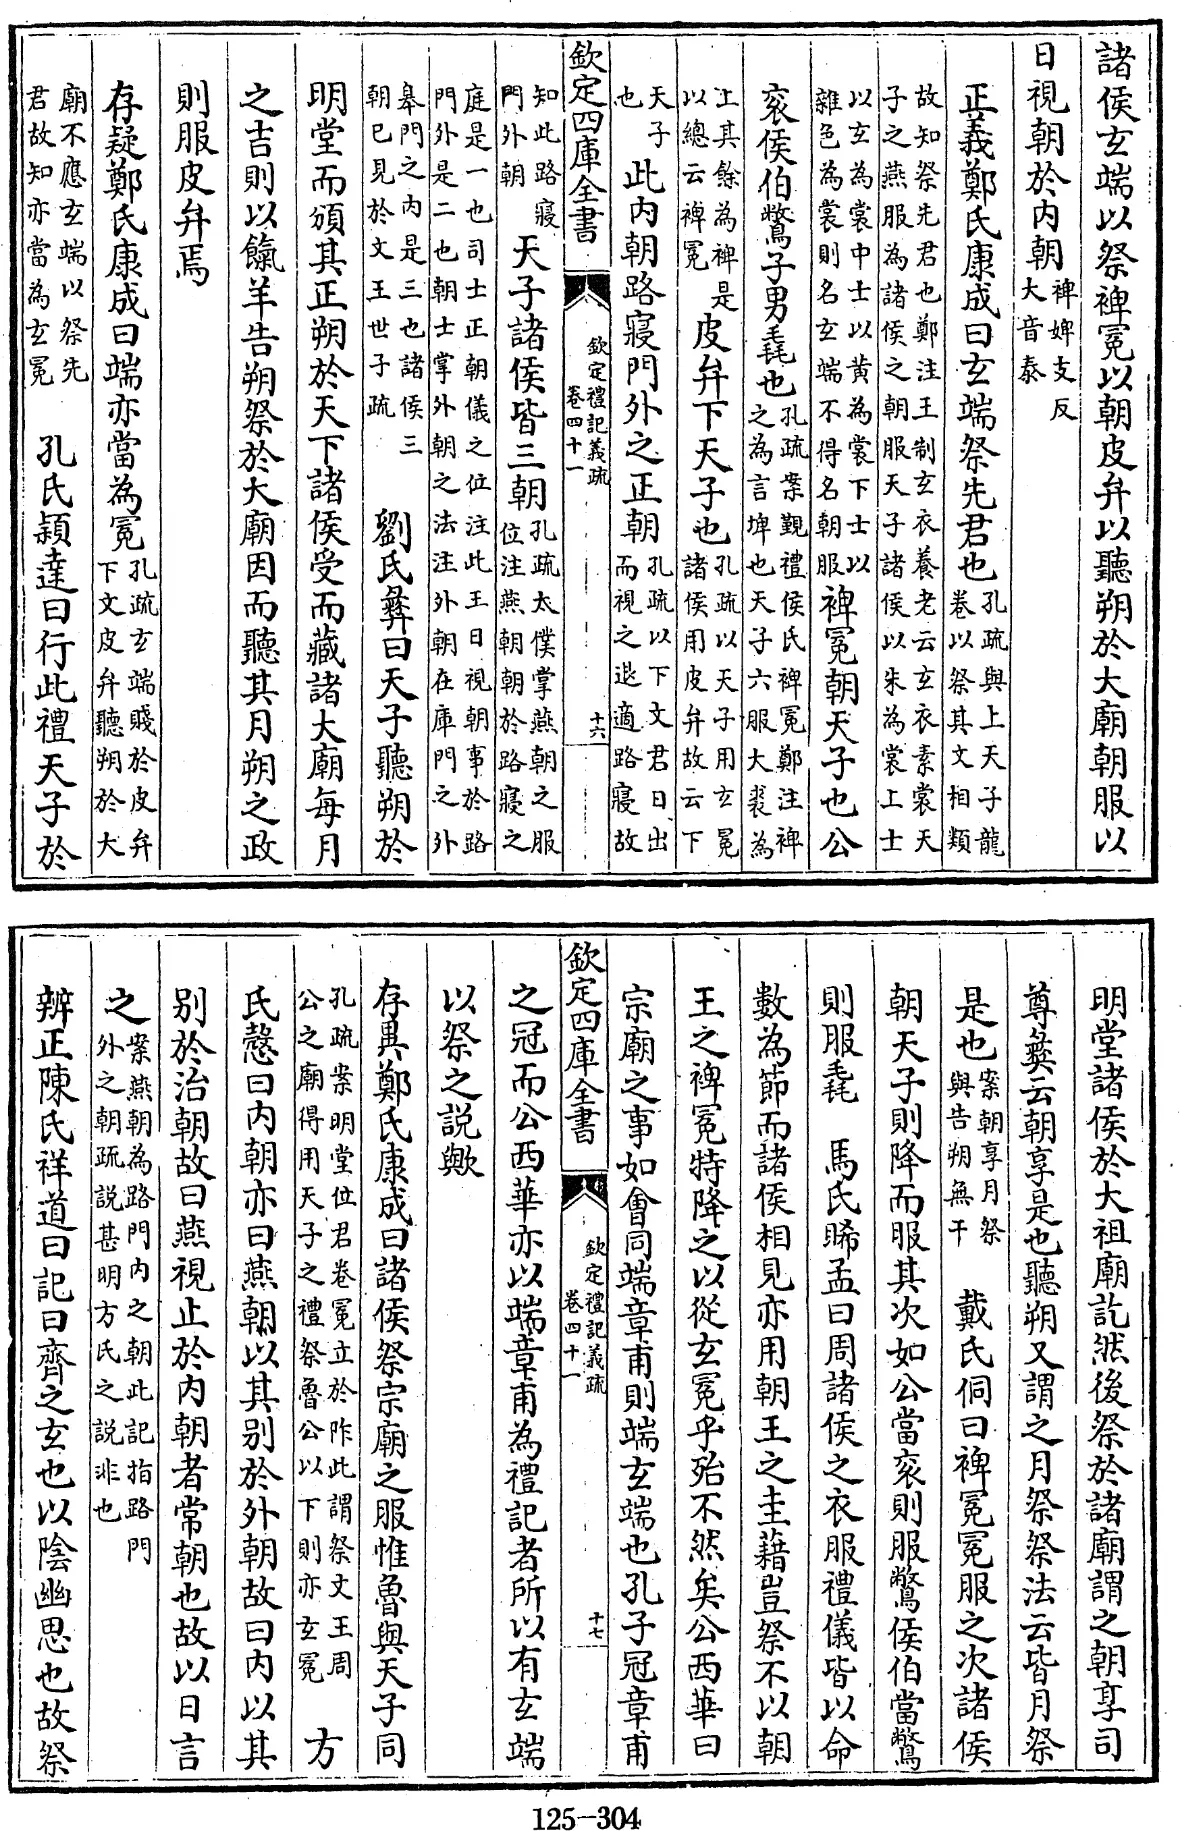 諸侯玄端以祭裨冕以朝皮弁以聽朔於大廟朝服以
日視朝於内朝裨婢支反
大音泰
正義鄭氏康成曰玄端祭先君也孔疏與上天子龍
卷以祭其文相類
故知祭先君也鄭注王制玄衣養老云玄衣素裳天
子之燕服為諸侯之朝服天子諸侯以朱為裳上士
以玄為裳中士以黄為裳下士以
雜色為裳則名玄端不得名朝服裨冕朝天子也公
衮侯伯鷩子男毳也孔疏案覲禮侯氏裨冕鄭注裨
之為言埤也天子六服大裘為
上其餘為裨是
以總云裨冕皮弁下天子也孔疏以天子用玄冕
諸侯用皮弁故云下
天子
也此内朝路寢門外之正朝孔疏以下文君日出
而視之退適路寢故
欽定四庫全書
欽定禮記義疏
卷四十一
十六
知此路寢
門外朝天子諸侯皆三朝孔疏太僕掌燕朝之服
位注燕朝朝於路寢之
庭是一也司士正朝儀之位注此王日視朝事於路
門外是二也朝士掌外朝之法注外朝在庫門之外
皋門之内是三也諸侯三
朝已見於文王世子疏劉氏彝曰天子聽朔於
明堂而頒其正朔於天下諸侯受而藏諸大廟每月
之吉則以餼羊告朔祭於大廟因而聽其月朔之政
則服皮弁焉
存疑鄭氏康成曰端亦當為冕孔疏玄端賤於皮弁
下文皮弁聽朔於大
廟不應玄端以祭先
君故知亦當為玄冕孔氏穎達曰行此禮天子於
明堂諸侯於大祖廟訖然後祭於諸廟謂之朝享司
尊彝云朝享是也聽朔又謂之月祭祭法云皆月祭
是也案朝享月祭
與告朔無干戴氏侗曰裨冕冕服之次諸侯
朝天子則降而服其次如公當衮則服鷩侯伯當鷩
則服毳 馬氏睎孟曰周諸侯之衣服禮儀皆以命
數為節而諸侯相見亦用朝王之圭藉豈祭不以朝
王之裨冕特降之以從玄冕乎殆不然矣公西華曰
宗廟之事如會同端章甫則端玄端也孔子冠章甫
欽定四庫全書
欽定禮記義疏
卷四十一
十七
之冠而公西華亦以端章甫為禮記者所以有玄端
以祭之說歟
存異鄭氏康成曰諸侯祭宗廟之服惟魯與天子同
孔疏案明堂位君卷冕立於阼此謂祭文王周
公之廟得用天子之禮祭魯公以下則亦玄冕方
氏慤曰内朝亦曰燕朝以其别於外朝故曰内以其
别於治朝故曰燕視止於内朝者常朝也故以日言
之案燕朝為路門内之朝此記指路門
外之朝疏說甚明方氏之說非也
辨正陳氏祥道曰記曰齊之玄也以陰幽思也故祭
125-304